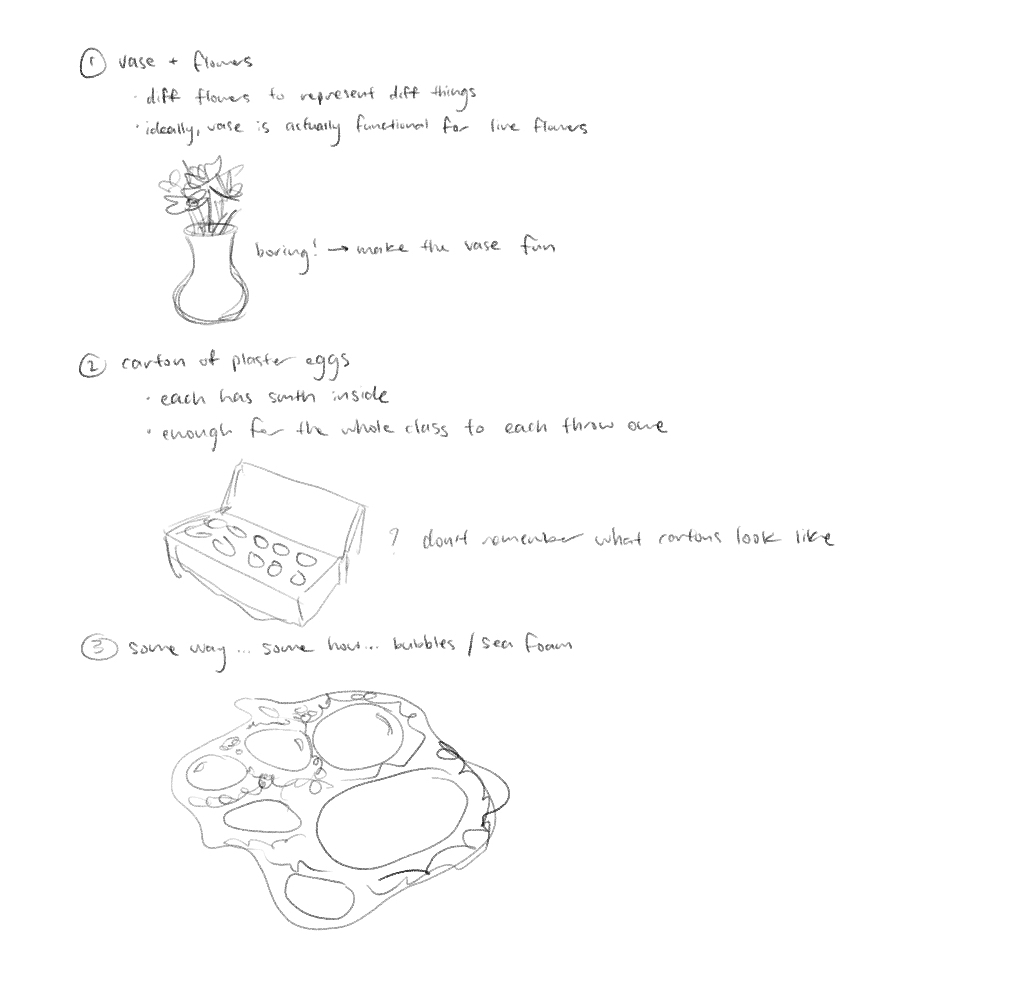 ① vase + flowers
· diff flowers to represent diff things
· ideally, vase is actually functional for live flowers
boring! → make the vase fun
② carton of plaster eggs
· each has smth inside
· enough for the whole class to each throw one
? don't remember what cartons look like
③ some way... some how... bubbles / sea foam